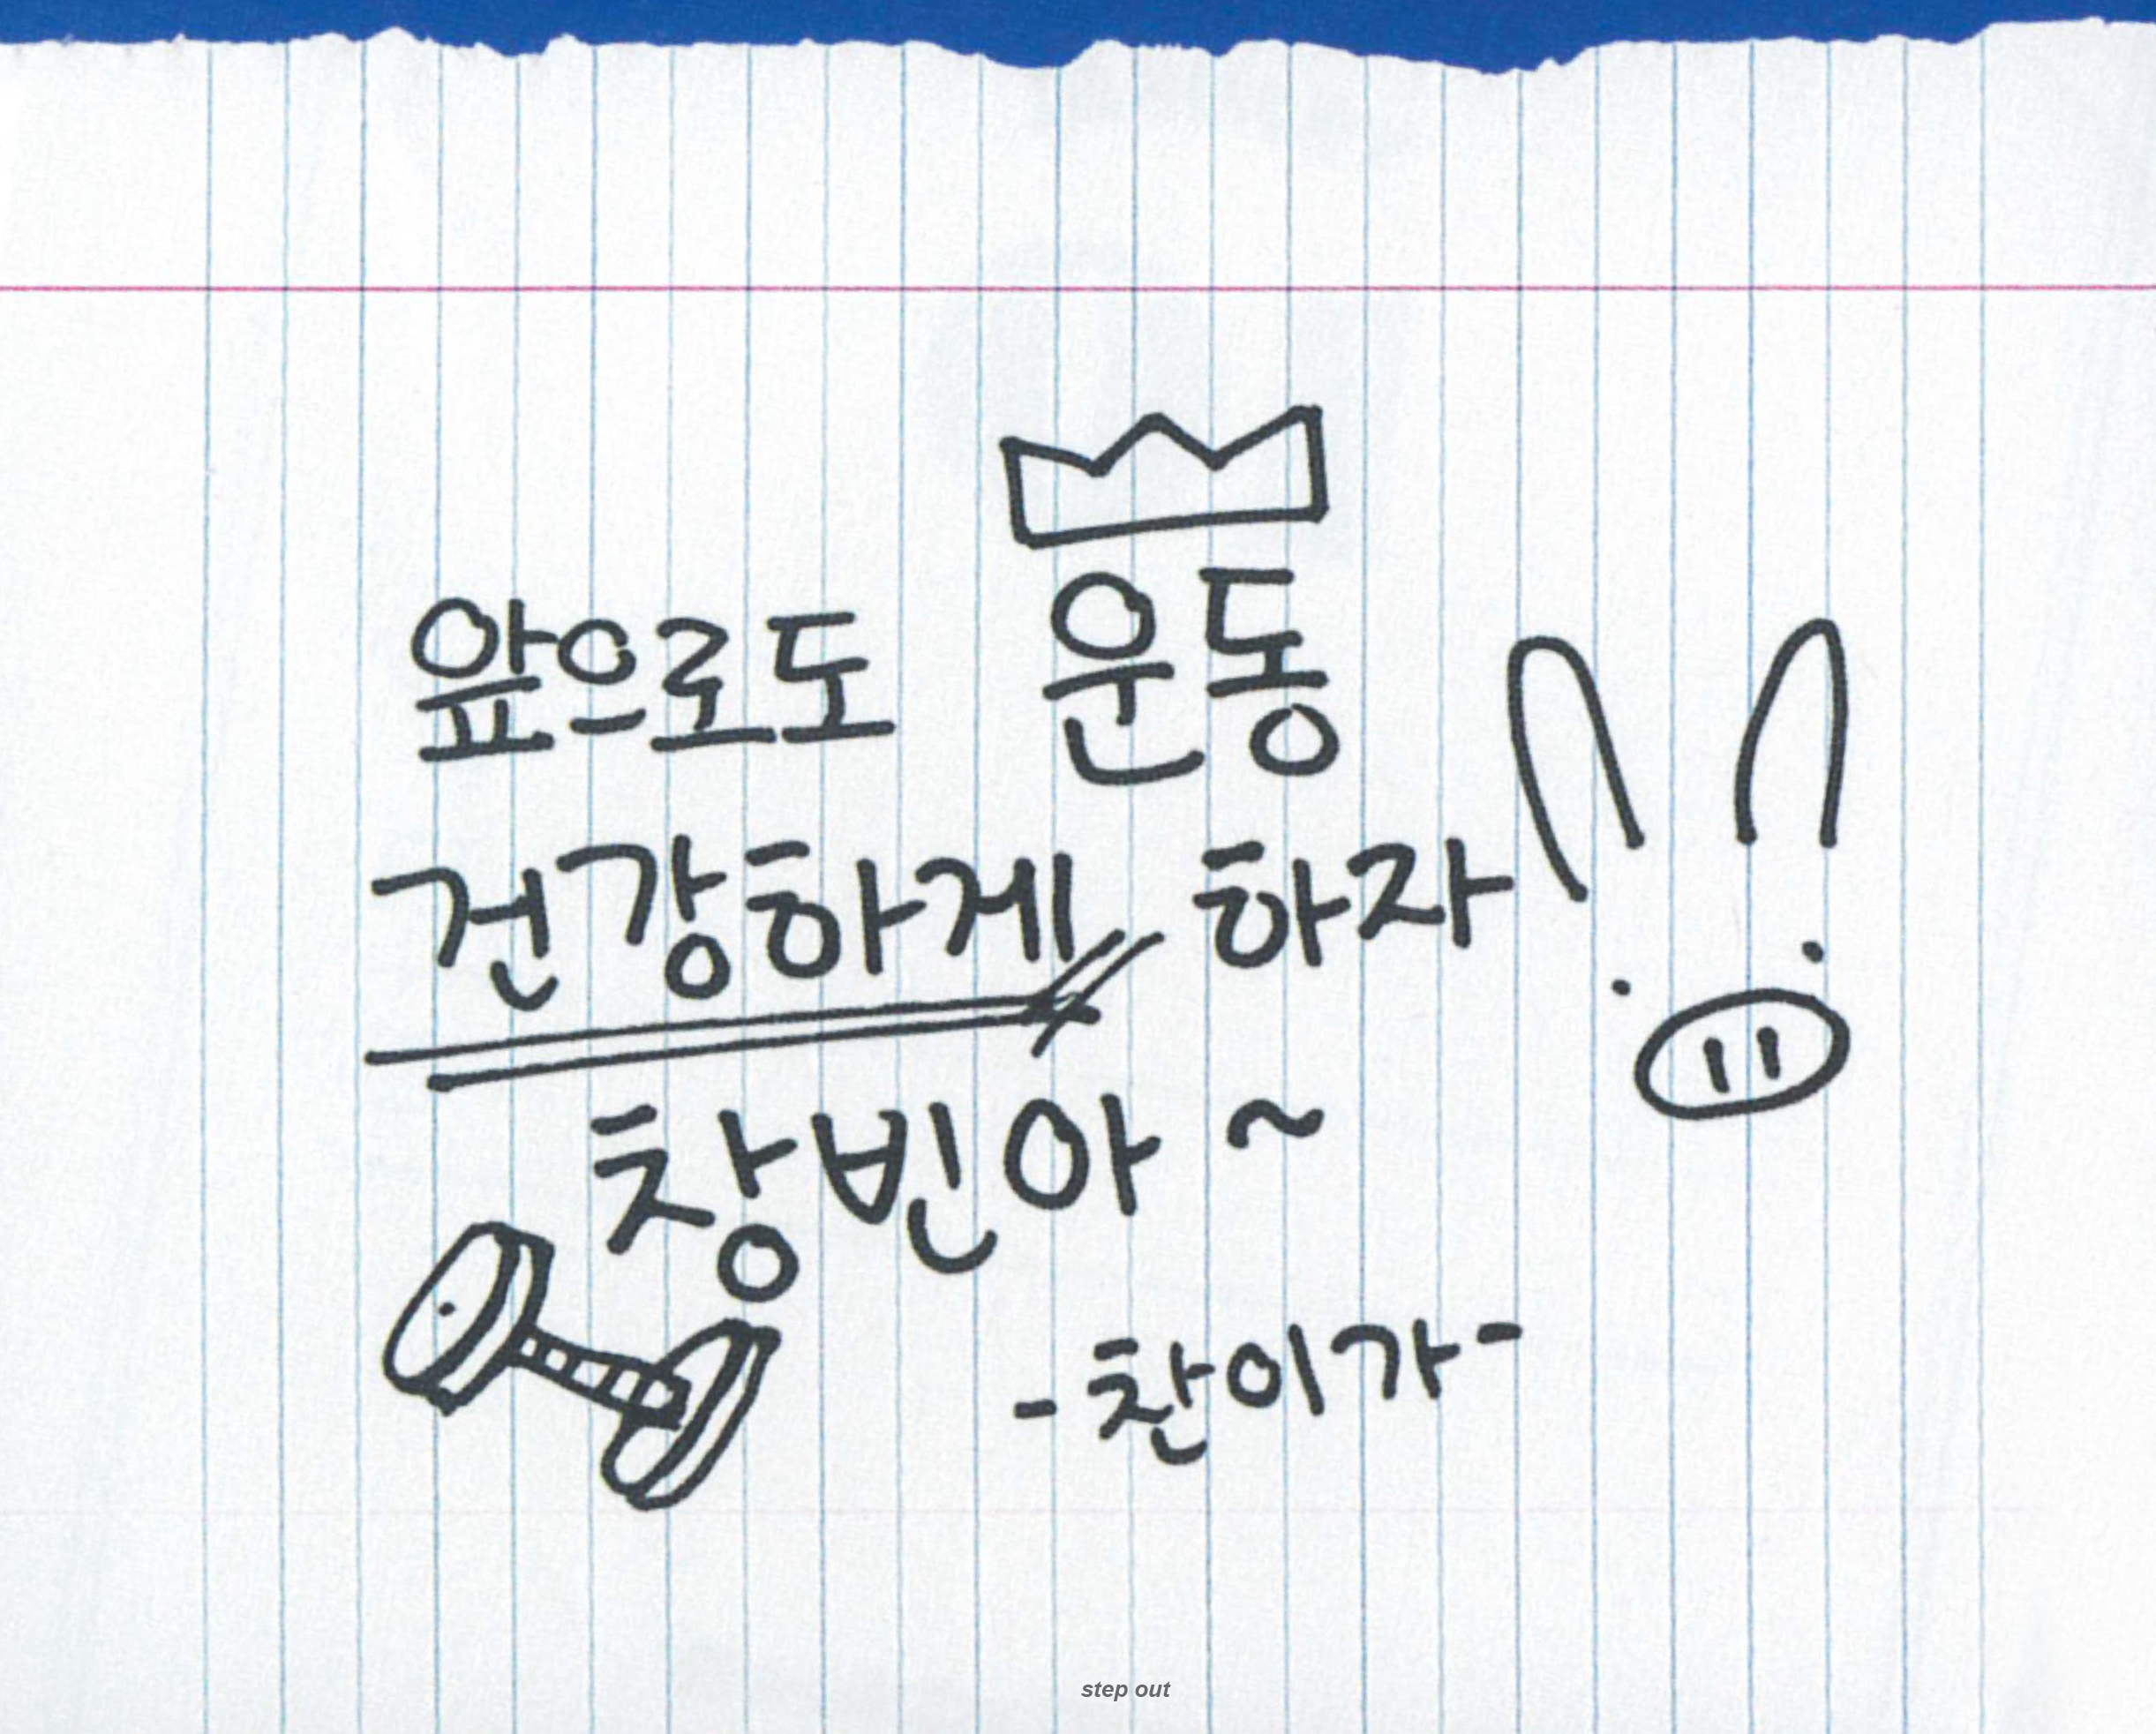 앞으로도 운동
건강하게 하자
창빈아 ~
-찬이가-
step out